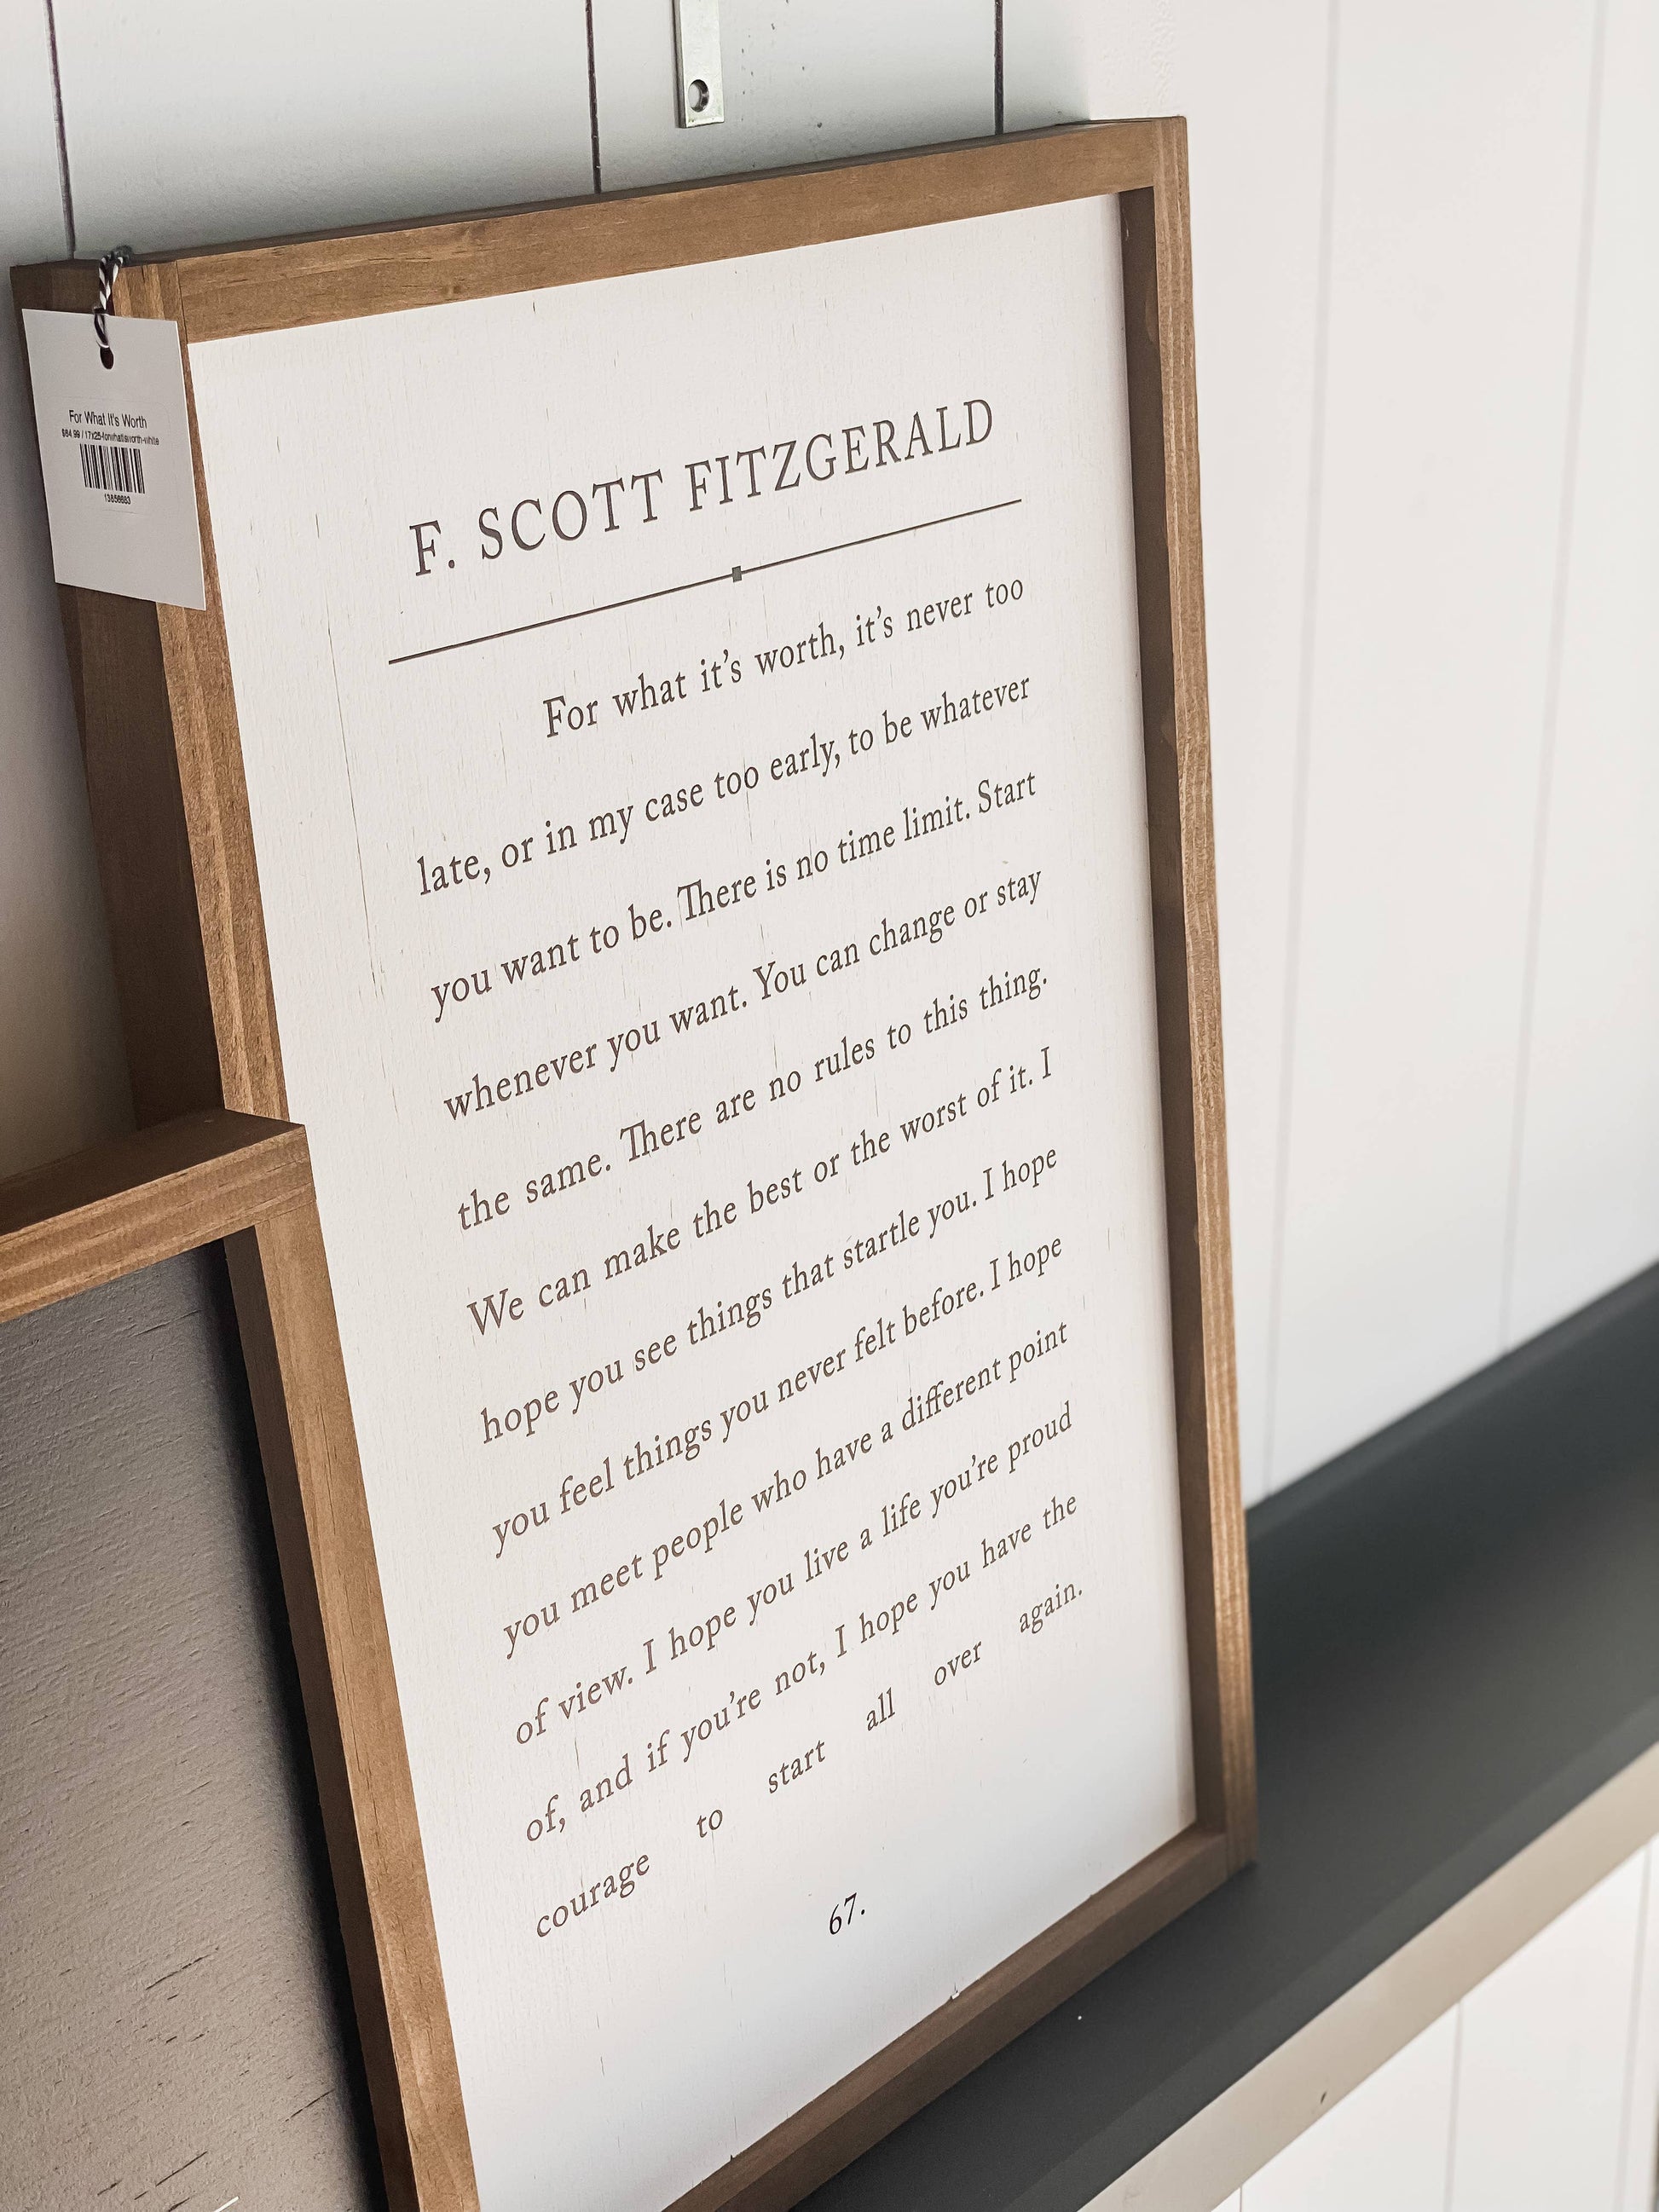 For What It's Worth
$84.99 / 17x25-forwhatitsworth-white
13856683
F. SCOTT FITZGERALD
For what it's worth, it's never too
late, or in my case too early, to be whatever
you want to be. There is no time limit. Start
whenever you want. You can change or stay
the same. There are no rules to this thing.
We can make the best or the worst of it. I
hope you see things that startle you. I hope
you feel things you never felt before. I hope
you meet people who have a different point
of view. I hope you live a life you're proud
of, and if you're not, I hope you have the
courage to start all over again.
67.